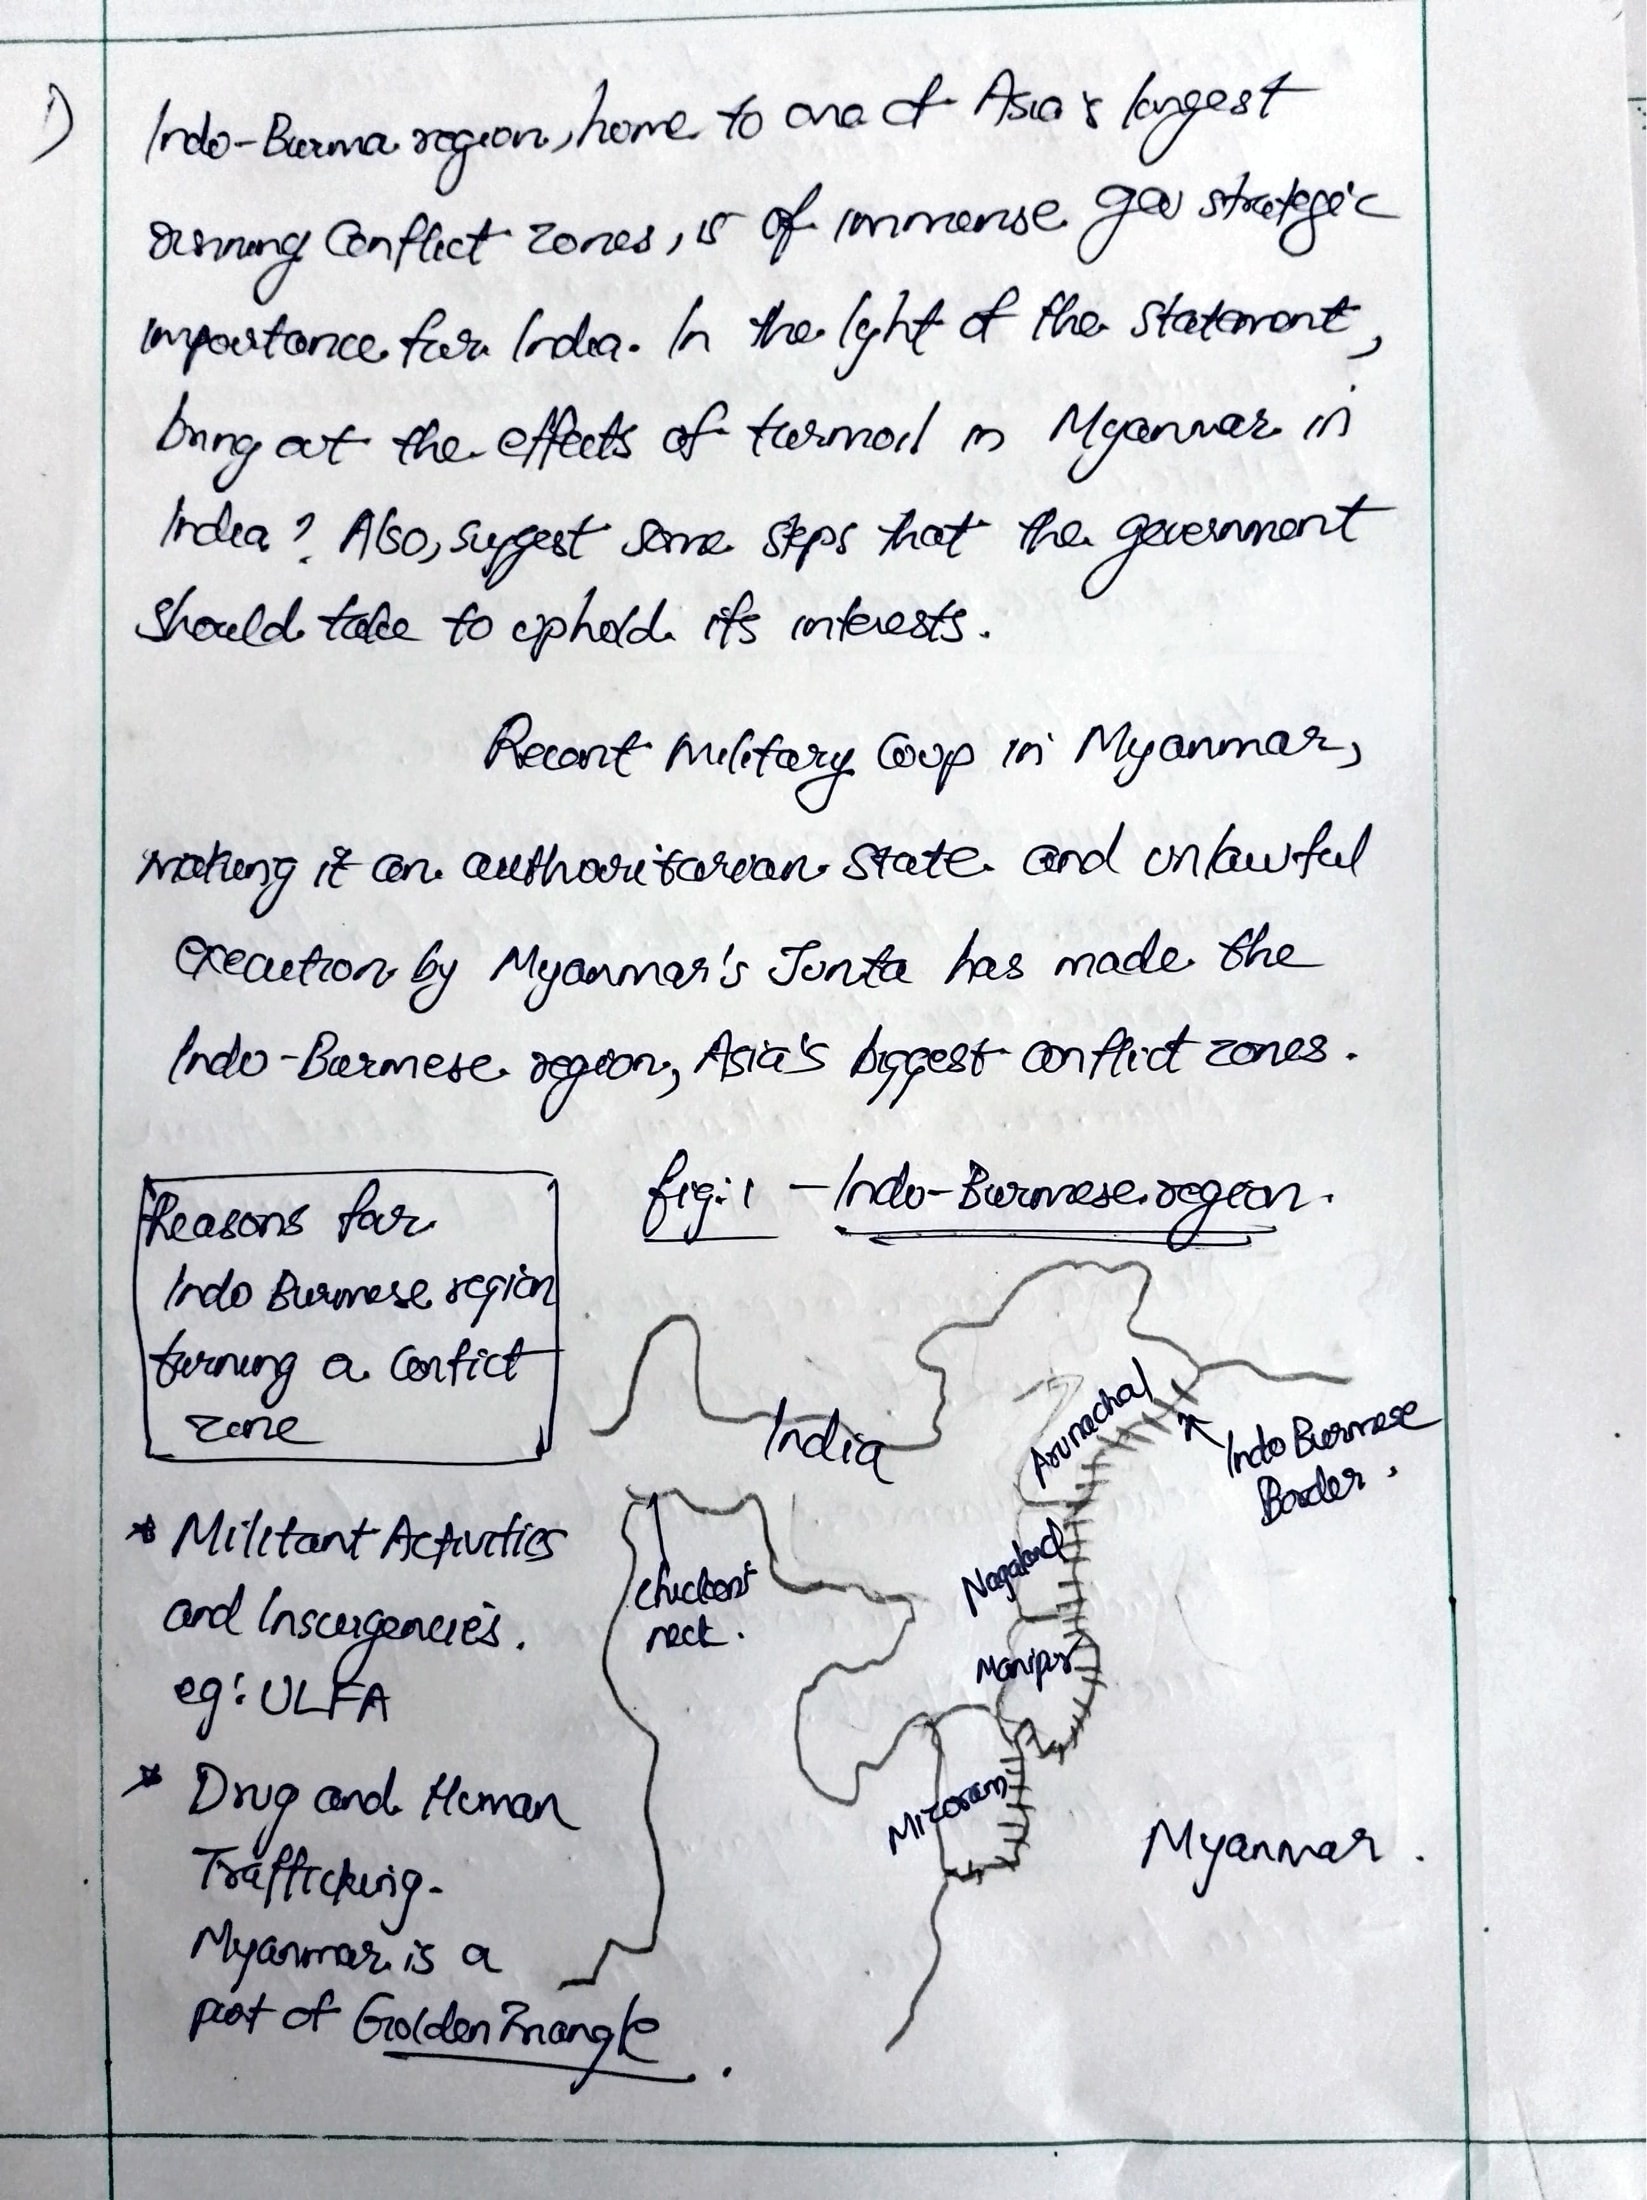 1)
Indo-Burma region, home to one of Asia's longest
running Conflict zones, is of immense geo strategic
importance for India. In the light of the statement,
bring out the effects of turmoil in Myanmar in
India? Also, suggest some steps that the government
should take to uphold its interests.
Recent Military Coup in Myanmar,
making it an authoritarian state and unlawful
execution by Myanmar's Junta has made the
Indo-Burmese region, Asia's biggest conflict zones.
fig:1 - Indo-Burmese region.
Reasons for
Indo Burmese region
turning a Confict
zone
* Militant Activities
and Insurgencies.
eg: ULFA
* Drug and Human
Trafficking.
Myanmar is a
part of Golden Triangle.
India
Chicken's
neck.
Arunachal
Nagaland
Manipur
Mizoram
Indo Burmese
Border.
Myanmar.